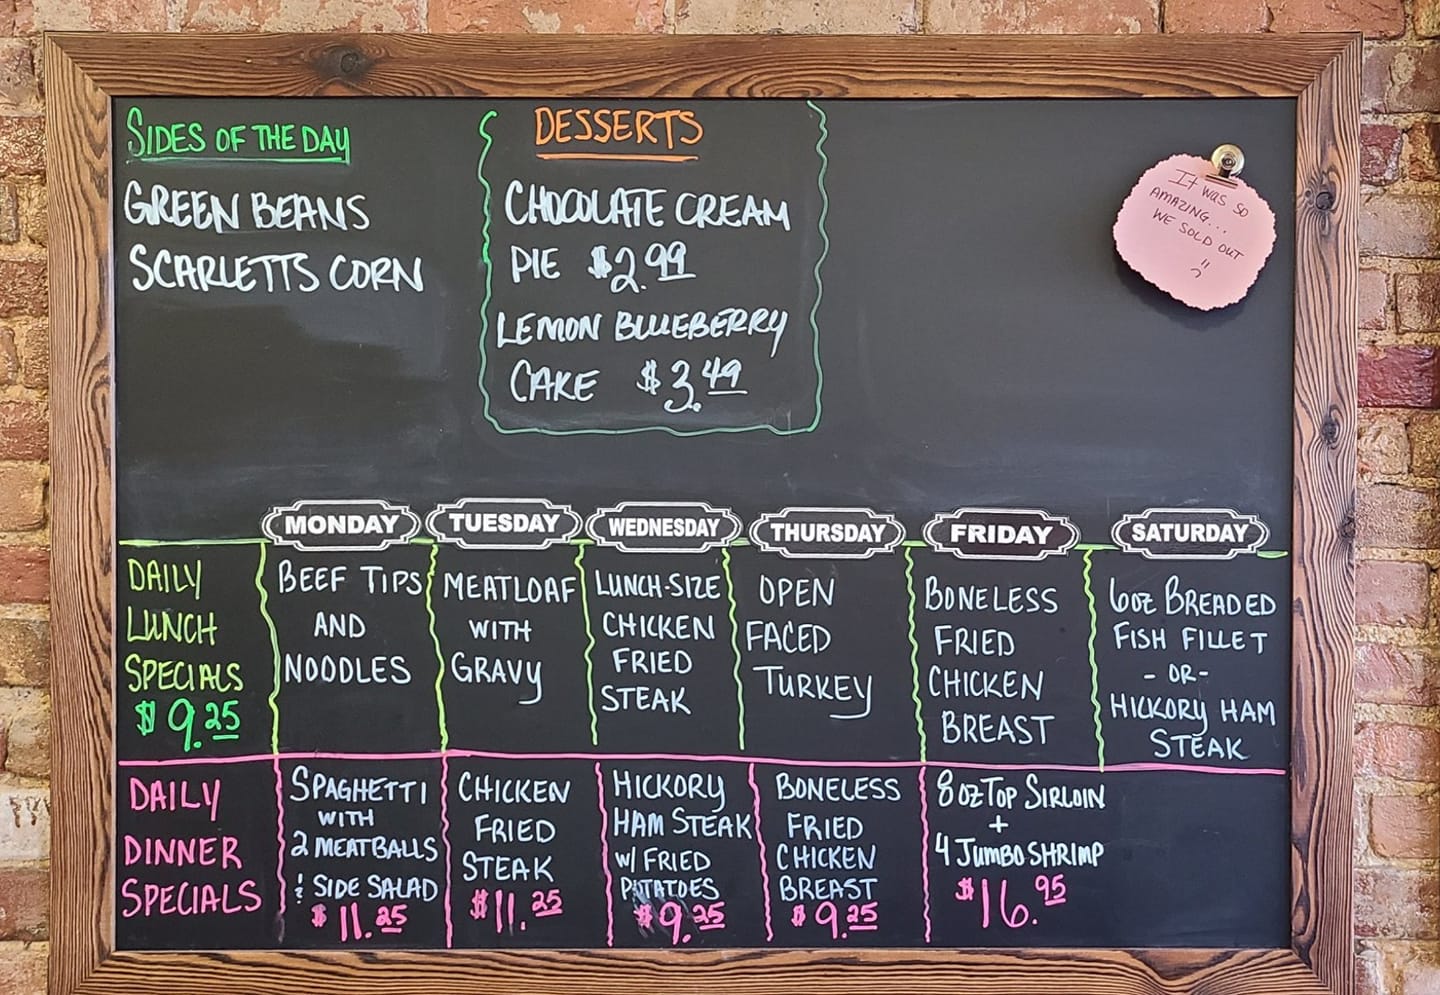 SIDES OF THE DAY
GREEN BEANS
SCARLETTS CORN
DESSERTS
CHOCOLATE CREAM
PIE $2.99
LEMON BLUEBERRY
CAKE $3.49
IT WAS SO
AMAZING...
WE SOLD OUT
MONDAY
TUESDAY
WEDNESDAY
THURSDAY
FRIDAY
SATURDAY
DAILY
LUNCH
SPECIALS
$9.25
BEEF TIPS
AND
NOODLES
MEATLOAF
WITH
GRAVY
LUNCH-SIZE
CHICKEN
FRIED
STEAK
OPEN
FACED
TURKEY
BONELESS
FRIED
CHICKEN
BREAST
6oz BREADED
FISH FILLET
- OR -
HICKORY HAM
STEAK
DAILY
DINNER
SPECIALS
SPAGHETTI
WITH
2 MEATBALLS
& SIDE SALAD
$11.25
CHICKEN
FRIED
STEAK
$11.25
HICKORY
HAM STEAK
W/ FRIED
POTATOES
$9.25
BONELESS
FRIED
CHICKEN
BREAST
$9.25
8oz TOP SIRLOIN
+
4 JUMBO SHRIMP
$16.95